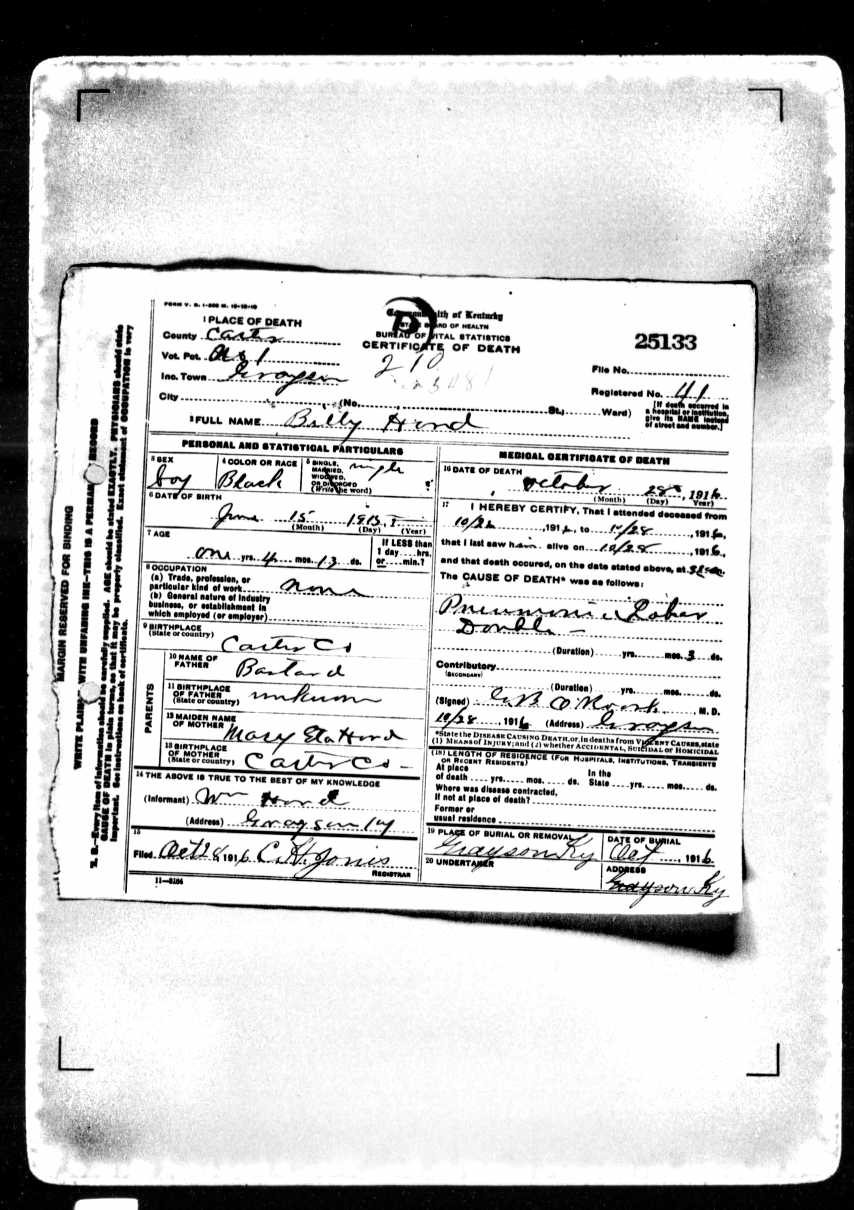 FORM V. S. 1-
Commonwealth of Kentucky
STATE BOARD OF HEALTH
BUREAU OF VITAL STATISTICS
CERTIFICATE OF DEATH
1 PLACE OF DEATH
County Carter
Vot. Pct. No 1
Inc. Town Grayson
City
210
25133
File No.
Registered No. 41
(No. St.; Ward)
[If death occurred in
a hospital or institution,
give its NAME instead
of street and number.]
2 FULL NAME Billy Hord
PERSONAL AND STATISTICAL PARTICULARS
3 SEX
boy
4 COLOR OR RACE
Black
5 SINGLE,
MARRIED,
WIDOWED,
OR DIVORCED
(Write the word)
single
6 DATE OF BIRTH
June 15 191
(Month) (Day) (Year)
7 AGE
one yrs. 4 mos. 13 ds.
If LESS than
1 day....hrs.
or....min.?
8 OCCUPATION
(a) Trade, profession, or
particular kind of work none
(b) General nature of industry
business, or establishment in
which employed (or employer)
9 BIRTHPLACE
(State or country)
Carter Co
PARENTS
10 NAME OF
FATHER
Bastard
11 BIRTHPLACE
OF FATHER
(State or country)
unknown
12 MAIDEN NAME
OF MOTHER
Mary Eta Hord
13 BIRTHPLACE
OF MOTHER
(State or country)
Carter Co
14 THE ABOVE IS TRUE TO THE BEST OF MY KNOWLEDGE
(Informant) Wm Hord
(Address) Grayson Ky
15
Filed Oct 28, 1916 C. H. Jones
REGISTRAR
11-3184
MEDICAL CERTIFICATE OF DEATH
16 DATE OF DEATH
October 28, 1916
(Month) (Day) (Year)
17 I HEREBY CERTIFY, That I attended deceased from
10/22, 1916, to 10/28, 1916,
that I last saw him alive on 10/28, 1916,
and that death occured, on the date stated above, at m.
The CAUSE OF DEATH* was as follows:
Pneumonia Lobar
Double
(Duration) yrs. mos. 3 ds.
Contributory
(SECONDARY)
(Duration) yrs. mos. ds.
(Signed) M. D.
10/28, 1916 (Address) Grayson
*State the DISEASE CAUSING DEATH, or, in deaths from VIOLENT CAUSES, state
(1) MEANS OF INJURY; and (2) whether ACCIDENTAL, SUICIDAL or HOMICIDAL
(18) LENGTH OF RESIDENCE (FOR HOSPITALS, INSTITUTIONS, TRANSIENTS
OR RECENT RESIDENTS)
At place In the
of death yrs. mos. ds. State yrs. mos. ds.
Where was disease contracted,
If not at place of death?
Former or
usual residence
19 PLACE OF BURIAL OR REMOVAL
Grayson Ky
DATE OF BURIAL
Oct, 1916
20 UNDERTAKER
ADDRESS
Grayson Ky
MARGIN RESERVED FOR BINDING
WRITE PLAINLY WITH UNFADING INK—THIS IS A PERMANENT RECORD
N. B.—Every item of information should be carefully supplied. AGE should be stated EXACTLY. PHYSICIANS should state
CAUSE OF DEATH in plain terms, so that it may be properly classified. Exact statement of OCCUPATION is very
important. See instructions on back of certificate.